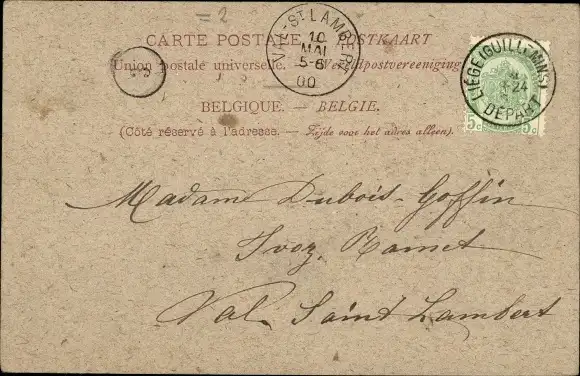 = 2
CARTE POSTALE POSTKAART
Union postale universelle. — Wereldpostvereeniging
BELGIQUE. — BELGIE.
(Côté réservé à l'adresse. — Zijde voor het adres alleen).
VAL-ST LAMBERT
10
MAI
5-6
00
LIÉGE (GUILLEMINS)
DÉPART
5c 5c
Madame Dubois-Goffin
Ivoz Ramet
Val Saint Lambert